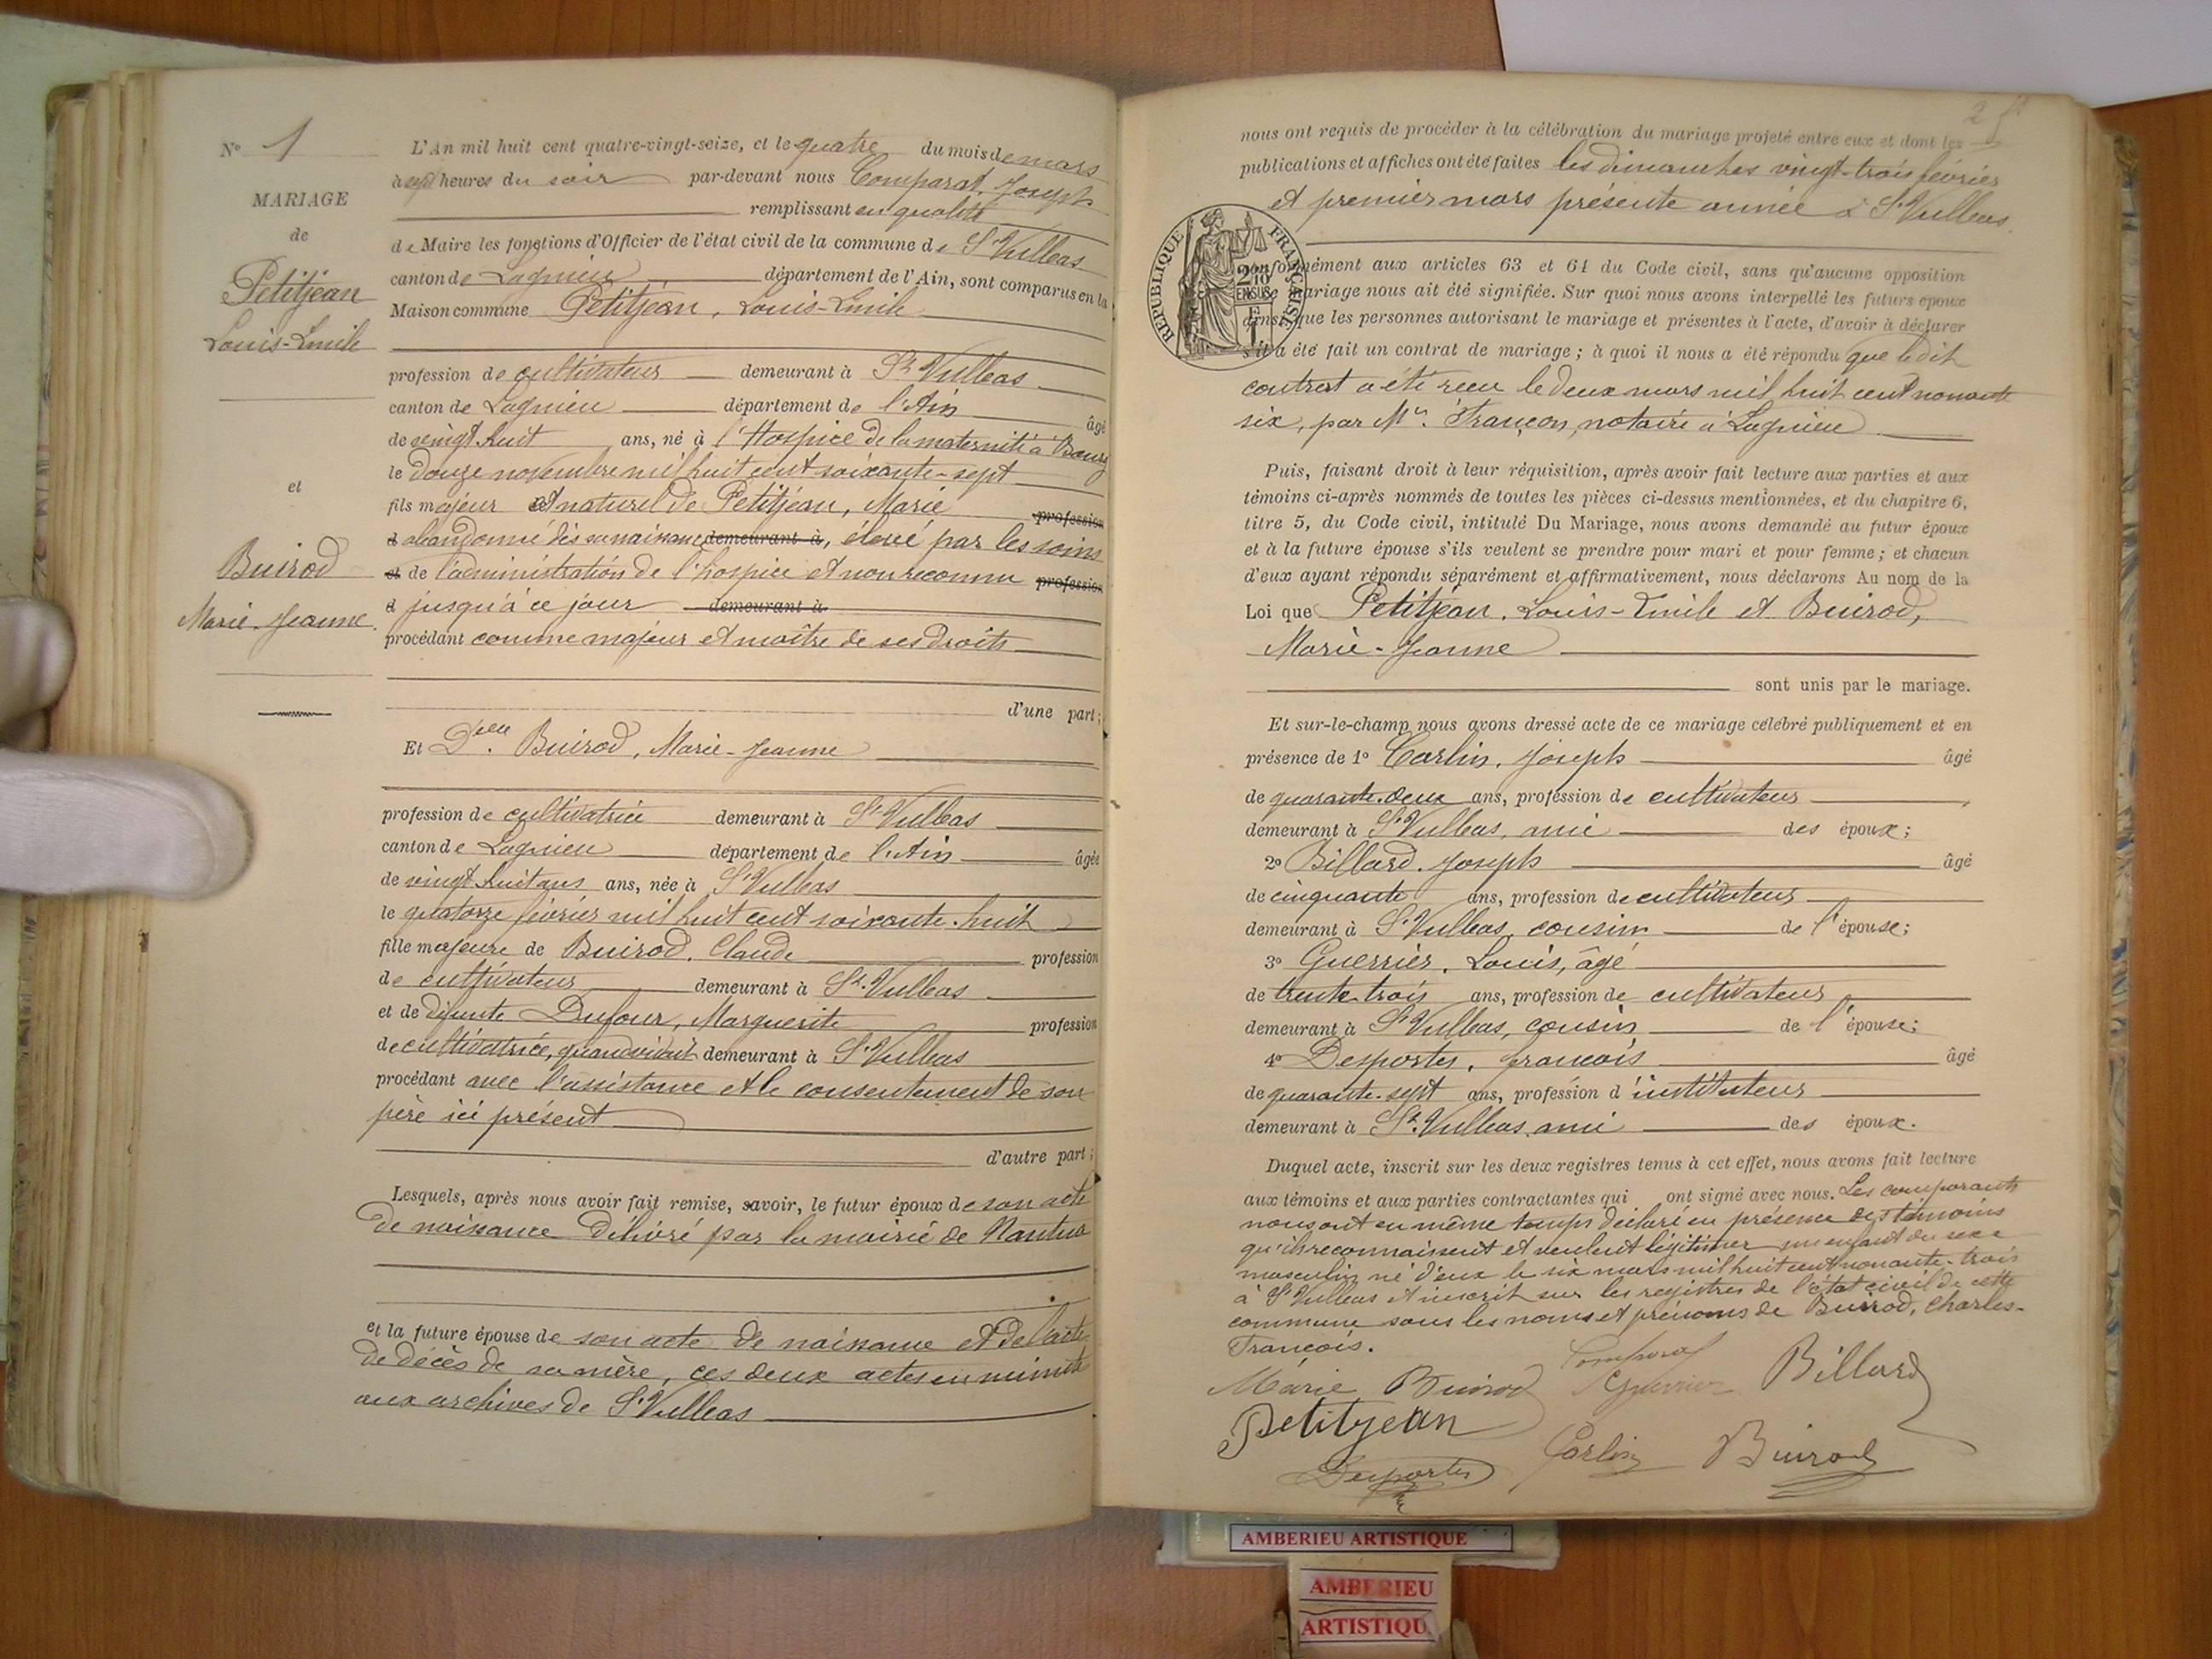 N° 1
MARIAGE
de
Petitjean
Louis-Emile
et
Buirod
Marie-Jeanne
L'An mil huit cent quatre-vingt-seize, et le quatre du mois de mars
à sept heures du soir par-devant nous Comparat, Joseph
remplissant en qualité
de Maire les fonctions d'Officier de l'état civil de la commune de St Vulbas
canton de Lagnieu département de l'Ain, sont comparus en la
Maison commune Petitjean, Louis-Emile
profession de cultivateur demeurant à St Vulbas
canton de Lagnieu département de l'Ain âgé
de vingt huit ans, né à l'Hospice de la maternité à Bourg
le douze novembre mil huit cent soixante-sept
fils majeur et naturel de Petitjean, Marie profession
d abandonné dès sa naissance demeurant à, élevé par les soins
et de l'administration de l'hospice et non reconnu profession
d jusqu'à ce jour demeurant à
procédant comme majeur et maître de ses droits
d'une part;
Et Delle Buirod, Marie-Jeanne
profession de cultivatrice demeurant à St Vulbas
canton de Lagnieu département de l'Ain âgée
de vingt huit ans ans, née à St Vulbas
le quatorze février mil huit cent soixante-huit
fille majeure de Buirod, Claude profession
de cultivateur demeurant à St Vulbas
et de défunte Dufour, Marguerite profession
de cultivatrice, quand vivait demeurant à St Vulbas
procédant avec l'assistance et le consentement de son
père ici présent
d'autre part;
Lesquels, après nous avoir fait remise, savoir, le futur époux de son acte
de naissance délivré par la mairie de Nantua
et la future épouse de son acte de naissance et de l'acte
de décès de sa mère, ces deux actes en minute
aux archives de St Vulbas
nous ont requis de procéder à la célébration du mariage projeté entre eux et dont les
publications et affiches ont été faites les dimanches vingt-trois février
et premier mars présente année à St Vulbas.
REPUBLIQUE FRANÇAISE
conformément aux articles 63 et 64 du Code civil, sans qu'aucune opposition
mariage nous ait été signifiée. Sur quoi nous avons interpellé les futurs époux
ainsi que les personnes autorisant le mariage et présentes à l'acte, d'avoir à déclarer
s'il a été fait un contrat de mariage; à quoi il nous a été répondu que ledit
contrat a été reçu le deux mars mil huit cent nonante
six, par Me. Françon, notaire à Lagnieu
Puis, faisant droit à leur réquisition, après avoir fait lecture aux parties et aux
témoins ci-après nommés de toutes les pièces ci-dessus mentionnées, et du chapitre 6,
titre 5, du Code civil, intitulé Du Mariage, nous avons demandé au futur époux
et à la future épouse s'ils veulent se prendre pour mari et pour femme; et chacun
d'eux ayant répondu séparément et affirmativement, nous déclarons Au nom de la
Loi que Petitjean, Louis-Emile et Buirod,
Marie-Jeanne
sont unis par le mariage.
Et sur-le-champ nous avons dressé acte de ce mariage célébré publiquement et en
présence de 1° Carlin, Joseph âgé
de quarante-deux ans, profession de cultivateur
demeurant à St Vulbas, ami des époux;
2° Billard, Joseph âgé
de cinquante ans, profession de cultivateur
demeurant à St Vulbas, cousin de l'épouse;
3° Guerrier, Louis, âgé
de trente-trois ans, profession de cultivateur
demeurant à St Vulbas, cousin de l'épouse;
4° Desportes, François âgé
de quarante-sept ans, profession d'instituteur
demeurant à St Vulbas, ami des époux.
Duquel acte, inscrit sur les deux registres tenus à cet effet, nous avons fait lecture
aux témoins et aux parties contractantes qui ont signé avec nous. Les comparants
nous ont en même temps déclaré en présence des témoins
qu'ils reconnaissent et veulent légitimer un enfant du sexe
masculin né d'eux le six mars mil huit cent nonante-trois
à St Vulbas et inscrit sur les registres de l'état civil de cette
commune sous les noms et prénoms de Buirod, Charles-
François.
Marie Buirod Comparat Guerrier Billard
Petitjean
Desportes Carlin Buirod
AMBERIEU ARTISTIQUE
AMBERIEU
ARTISTIQU